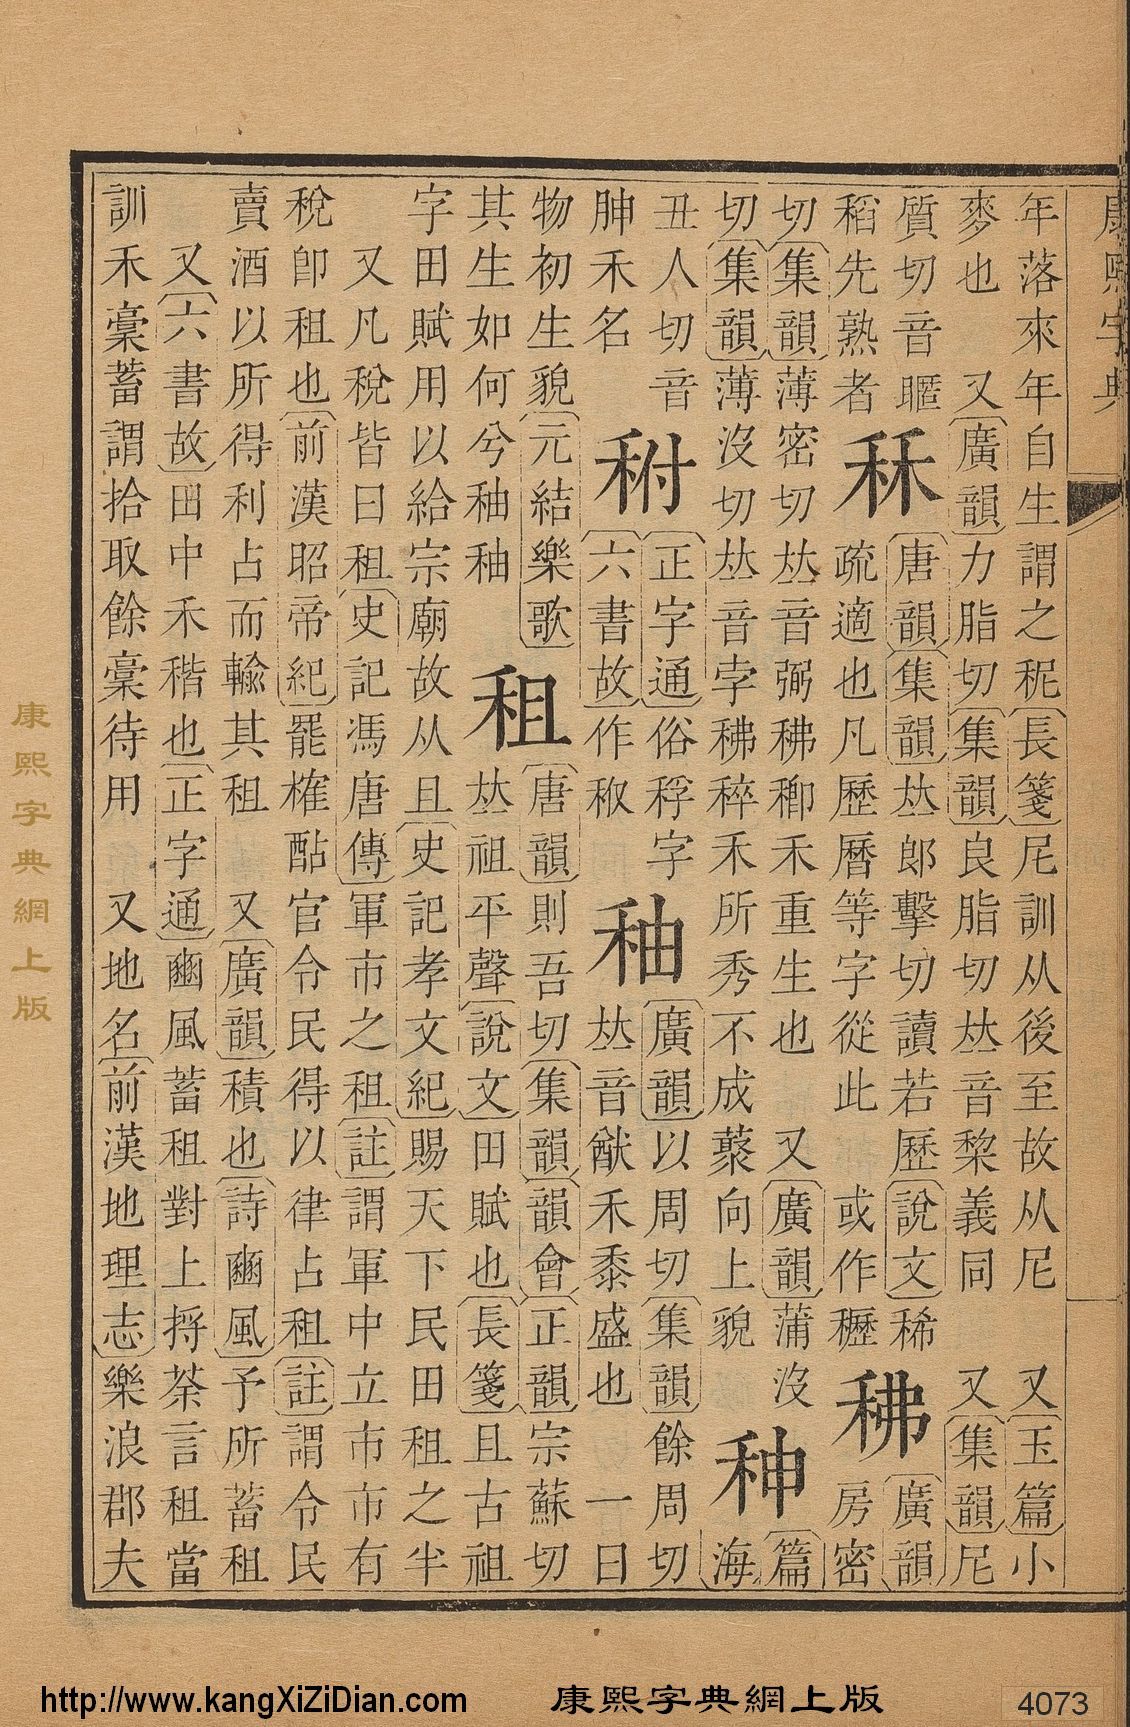 康熙字典
年落來年自生謂之秜長箋尼訓从後至故从尼　又玉篇小
麥也　又廣韻力脂切集韻良脂切𠀤音棃義同　又集韻尼
質切音暱
稻先熟者
秝
唐韻集韻𠀤郎擊切讀若歷說文稀
疏適也凡歷曆等字從此　或作䅻
䄶
廣韻
房密
切集韻薄密切𠀤音弼䄶禾重生也　又廣韻蒲沒
切集韻薄沒切𠀤音孛䄶稡禾所秀不成向上貌
篇
海
丑人切音
胂禾名
䄮
正字通俗稃字
六書故作
秞
廣韻以周切集韻餘周切
𠀤音猷禾黍盛也　一曰
物初生貌元結樂歌
其生如何兮秞秞
租
唐韻則吾切集韻韻會正韻宗蘇切
𠀤祖平聲說文田賦也長箋且古祖
字田賦用以給宗廟故从且史記孝文紀賜天下民田租之半
又凡稅皆曰租史記馮唐傳軍市之租註謂軍中立市市有
稅卽租也前漢昭帝紀罷榷酤官令民得以律占租註謂令民
賣酒以所得利占而輸其租　又廣韻積也詩豳風予所蓄租
又六書故田中禾稭也正字通豳風蓄租對上捋荼言租當
訓禾稾蓄謂拾取餘稾待用　又地名前漢地理志樂浪郡夫
康熙字典網上版
http://www.kangXiZiDian.com
康熙字典網上版
4073